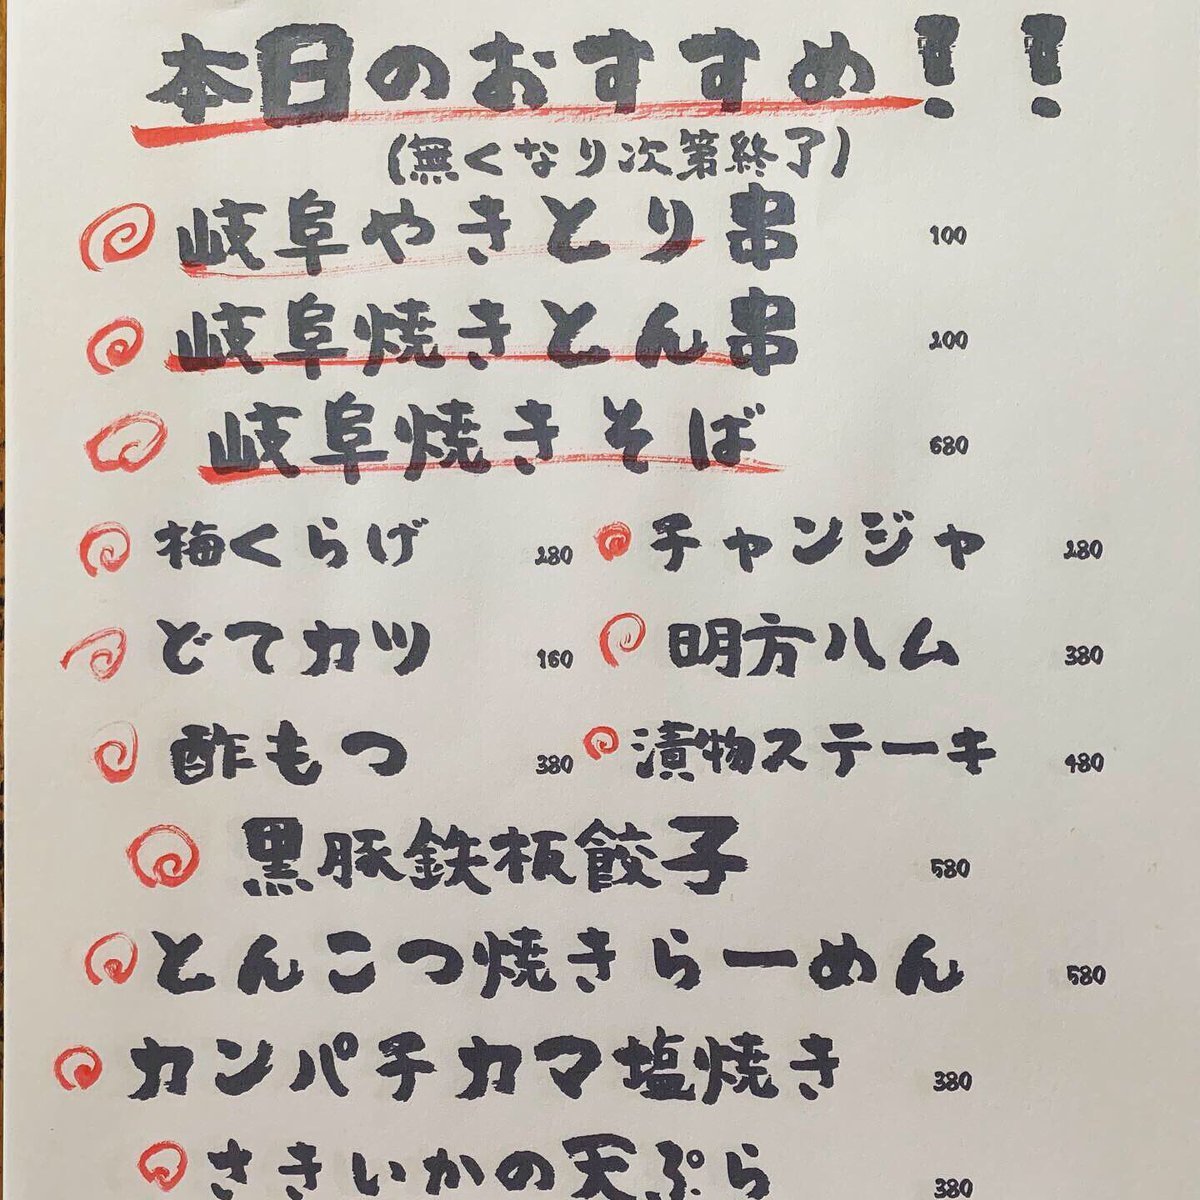 本日のおすすめ！！
(無くなり次第終了)
岐阜やきとり串 100
岐阜焼きとん串 200
岐阜焼きそば 680
梅くらげ 280 チャンジャ 280
どてカツ 160 明方ハム 380
酢もつ 380 漬物ステーキ 480
黒豚鉄板餃子 580
とんこつ焼きらーめん 580
カンパチカマ塩焼き 380
さきいかの天ぷら 380